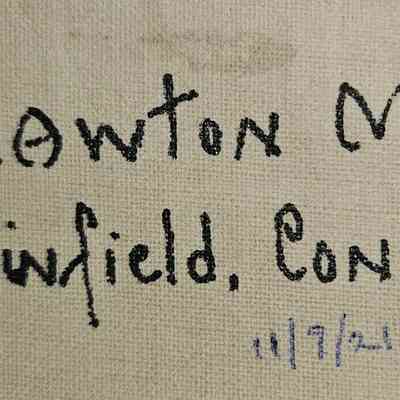 awton
infield, Con
11/9/21